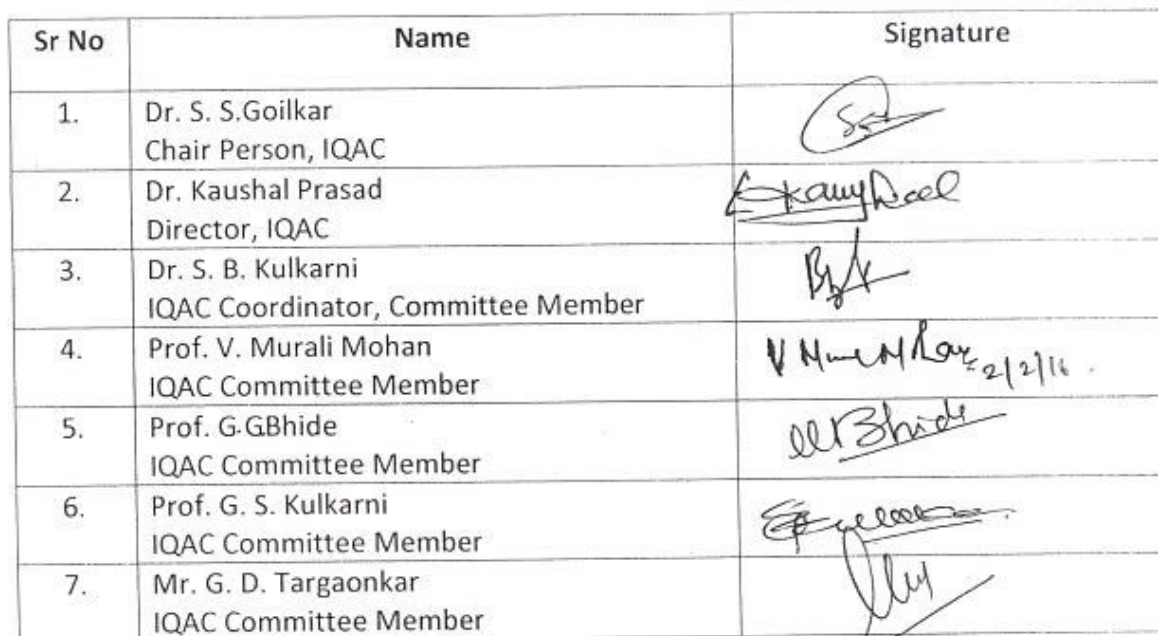 Sr No Name Signature
1. Dr. S. S.Goilkar
Chair Person, IQAC
2. Dr. Kaushal Prasad
Director, IQAC
3. Dr. S. B. Kulkarni
IQAC Coordinator, Committee Member
4. Prof. V. Murali Mohan
IQAC Committee Member
2/2/16.
5. Prof. G.GBhide Bhide
IQAC Committee Member
6. Prof. G. S. Kulkarni
IQAC Committee Member
7. Mr. G. D. Targaonkar
IQAC Committee Member